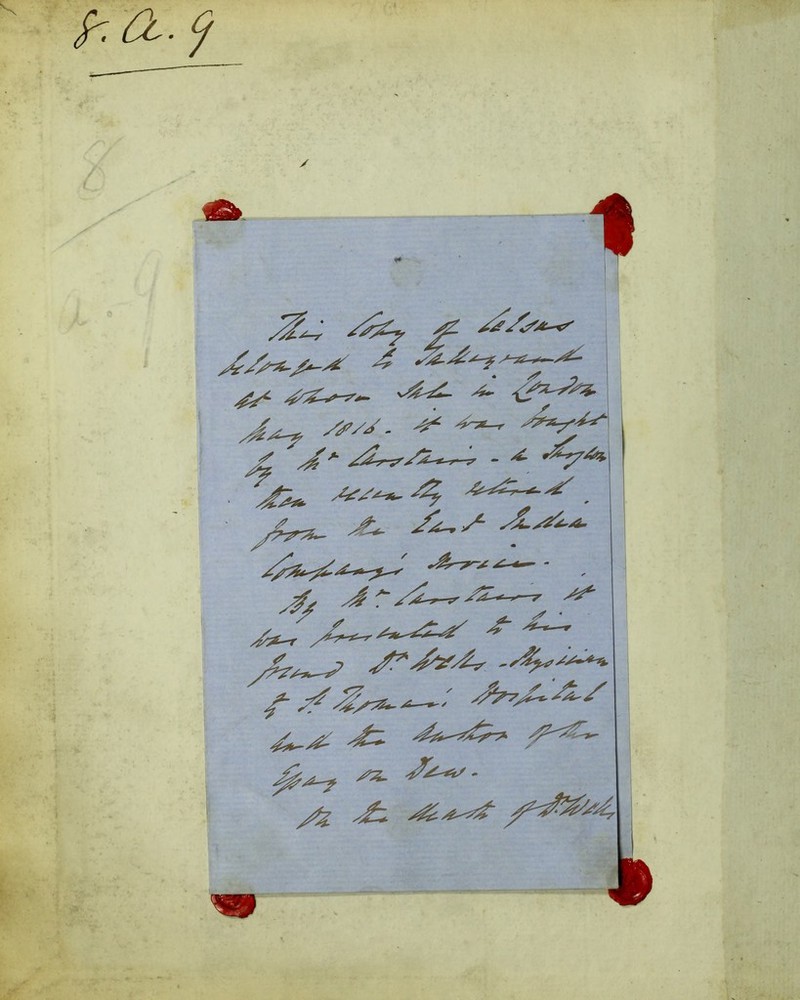 8. a. 9
8
a. 9
This Copy of Celsus
belonged to Talleyrand
at whose Sale in London
May 1816. it was bought
by Mr Carstairs - a Surgeon
then recently retired
from the East India
Company's Service.
By Mr. Carstairs it
was presented to his
friend Dr Wells - Physician
to St Thomas's Hospital
and the Author of the
Essay on Dew.
On the death of Dr Wells